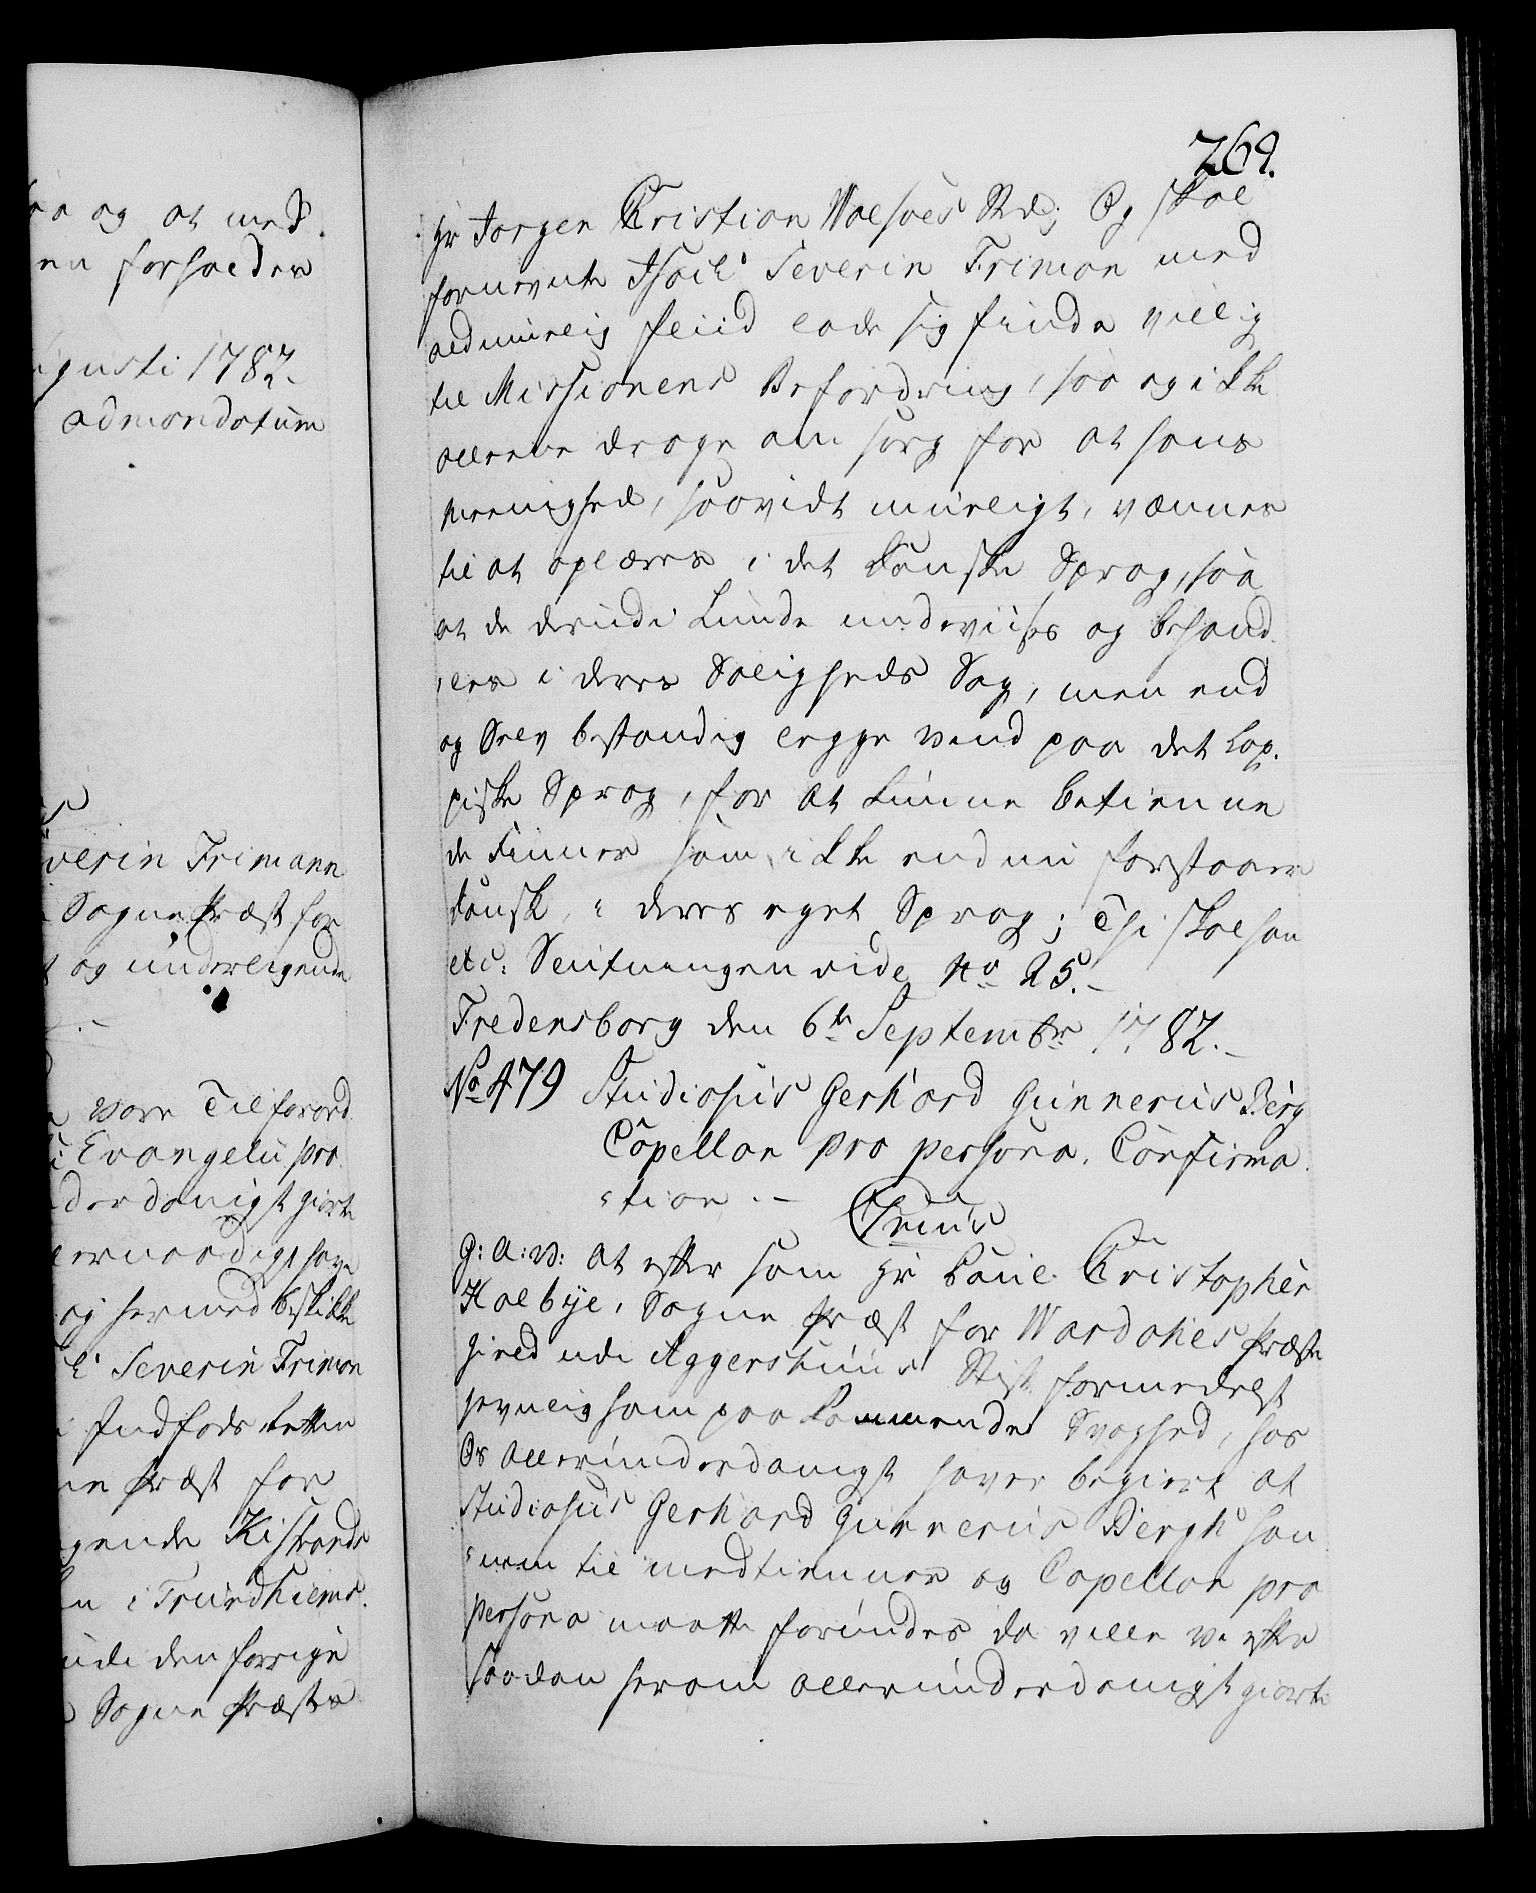 269.
Hr Jørgen Christian Walsøes Stæd; Og skal
fornevnte Isach Severin Friman med
aldmuelig fliid lade sig finde villig
til Missionens Befordring, saa og ikke
alleene drage om sorg for at hans
Meenighed, saavidt mueligt, vænnes
til at oplæres i det danske Sprog, saa
at de derudi kunde underviises og behand
les i deres Saligheds Sag, men end
og Selv bestandig legge vind paa det Lap-
piske Sprog, for at kunne betienne
de Finner som ikke end nu forstaaer
dansk, i deres eget Sprog; Thi skal han
etc: Slutningen vide No 25.-
Fredensborg den 6te Septembr 1782.-
No 479 Studiosus Gerhard Gunnerus Berg
Capellan pro persona. Confirma
tion.-
G: A: V: At efter som Hr Paul Christopher
Kolbye, Sogne Præst for Wardahls Præste
gield udi Aggershuus Stift formedelst
paa kommende Svaghed, hos
Os allerunderdanigst haver begiert at
Studiosus Gerhard Gunnerus Bergh han
nem til medtiennere og Capellan pro
persona maatte forundes da ville vi efter
saadan herom allerunderdanigst giorte
saa og at med
forholder
Augusti 1782.
ad mandatum
Severin Frimann
Sogne Præst for
og underligende
vore Tilforord
Evangelii pro
derdanigst giorte
allernaadigst have
og hermed beskikke
Severin Friman
Indføds retten
Præst for
Kistrands
i Trundhiems
udi den forrige
Sogne Præstes